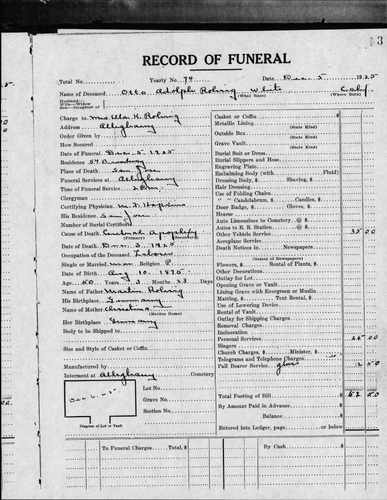 3
RECORD OF FUNERAL
Total No. Yearly No. 74 Date Dec. 5 1925
Name of Deceased Otto Adolph Rohrig White Calif
Husband (What Race) (Where Born)
Wife—Widow
Son—Daughter of
Charge to Mrs Ella K. Rohrig
Address Alleghany
Order Given by
How Secured
Date of Funeral Dec. 5 1925
Residence 59 Broadway
Place of Death San Jose
Funeral Services at Alleghany
Time of Service 2 P.M.
Clergyman
Certifying Physician M. T. Hopkins
His Residence San Jose
Number of Burial Certificate
Cause of Death Apoplexy
(Primary) (Secondary)
Date of Death Dec. 3 1925
Occupation of the Deceased Laborer
Single or Married Religion P.
Date of Birth Aug 10. 1875
Age 50 Years 3 Months 23 Days
Name of Father Martin Rohrig
His Birthplace Germany
Name of Mother Christina
(Maiden Name)
Her Birthplace Germany
Size and Style of Casket or Coffin
Manufactured by
Interment at Alleghany Cemetery
Lot No.
Grave No.
Section No.
Diagram of Lot or Vault
Casket or Coffin
Metallic Lining
(State Kind)
Outside Box
(State Kind)
Grave Vault
(State Kind)
Burial Suit or Dress
Burial Slippers and Hose
Engraving Plate
Embalming Body (with Fluid)
Dressing Body, $ Shaving, $
Hair Dressing
Use of Folding Chairs
" " Candelabrum, $ Candles, $
Door Badge, $ Gloves, $
Hearse
Auto Limousines to Cemetery @ $
Autos to R. R. Station @ $
Other Vehicle Service 35 00
Aeroplane Service
Death Notices in Newspapers
(Names of Newspapers)
Flowers, $ Rental of Plants, $
Other Decorations
Outlay for Lot
Opening Grave or Vault
Lining Grave with Evergreen or Muslin
Matting, $ Tent Rental, $
Use of Lowering Device
Rental of Vault
Outlay for Shipping Charges
Removal Charges
Incineration
Personal Services 25 00
Singers
Church Charges, $ Minister, $
Telegrams and Telephone Charges
Pall Bearer Service gloves 2 50
Total Footing of Bill $ 62 50
By Amount Paid in Advance
Balance
Entered into Ledger, page or below
To Funeral Charges Total $ By Cash $